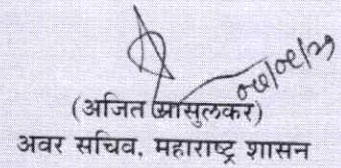 ०७/०९/२१
(अजित सासुलकर)
अवर सचिव, महाराष्ट्र शासन